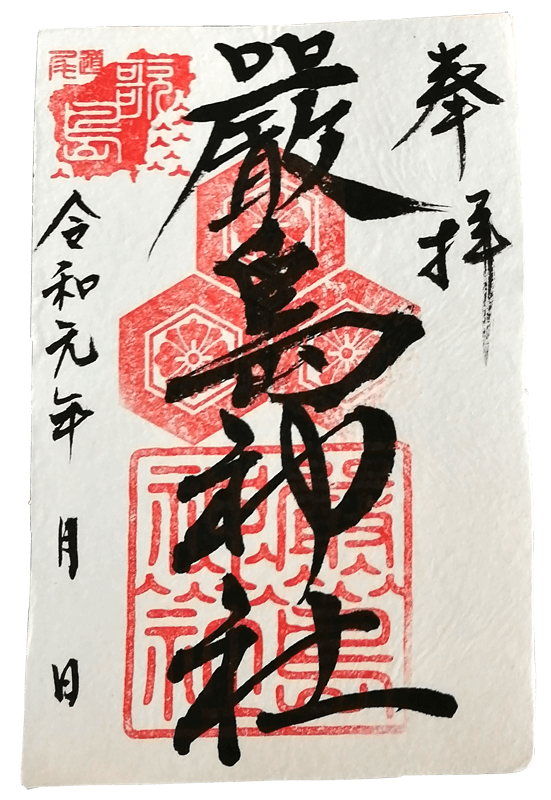 奉拝
嚴島神社
令和元年 月 日
尾道
歌島
嚴島
神社